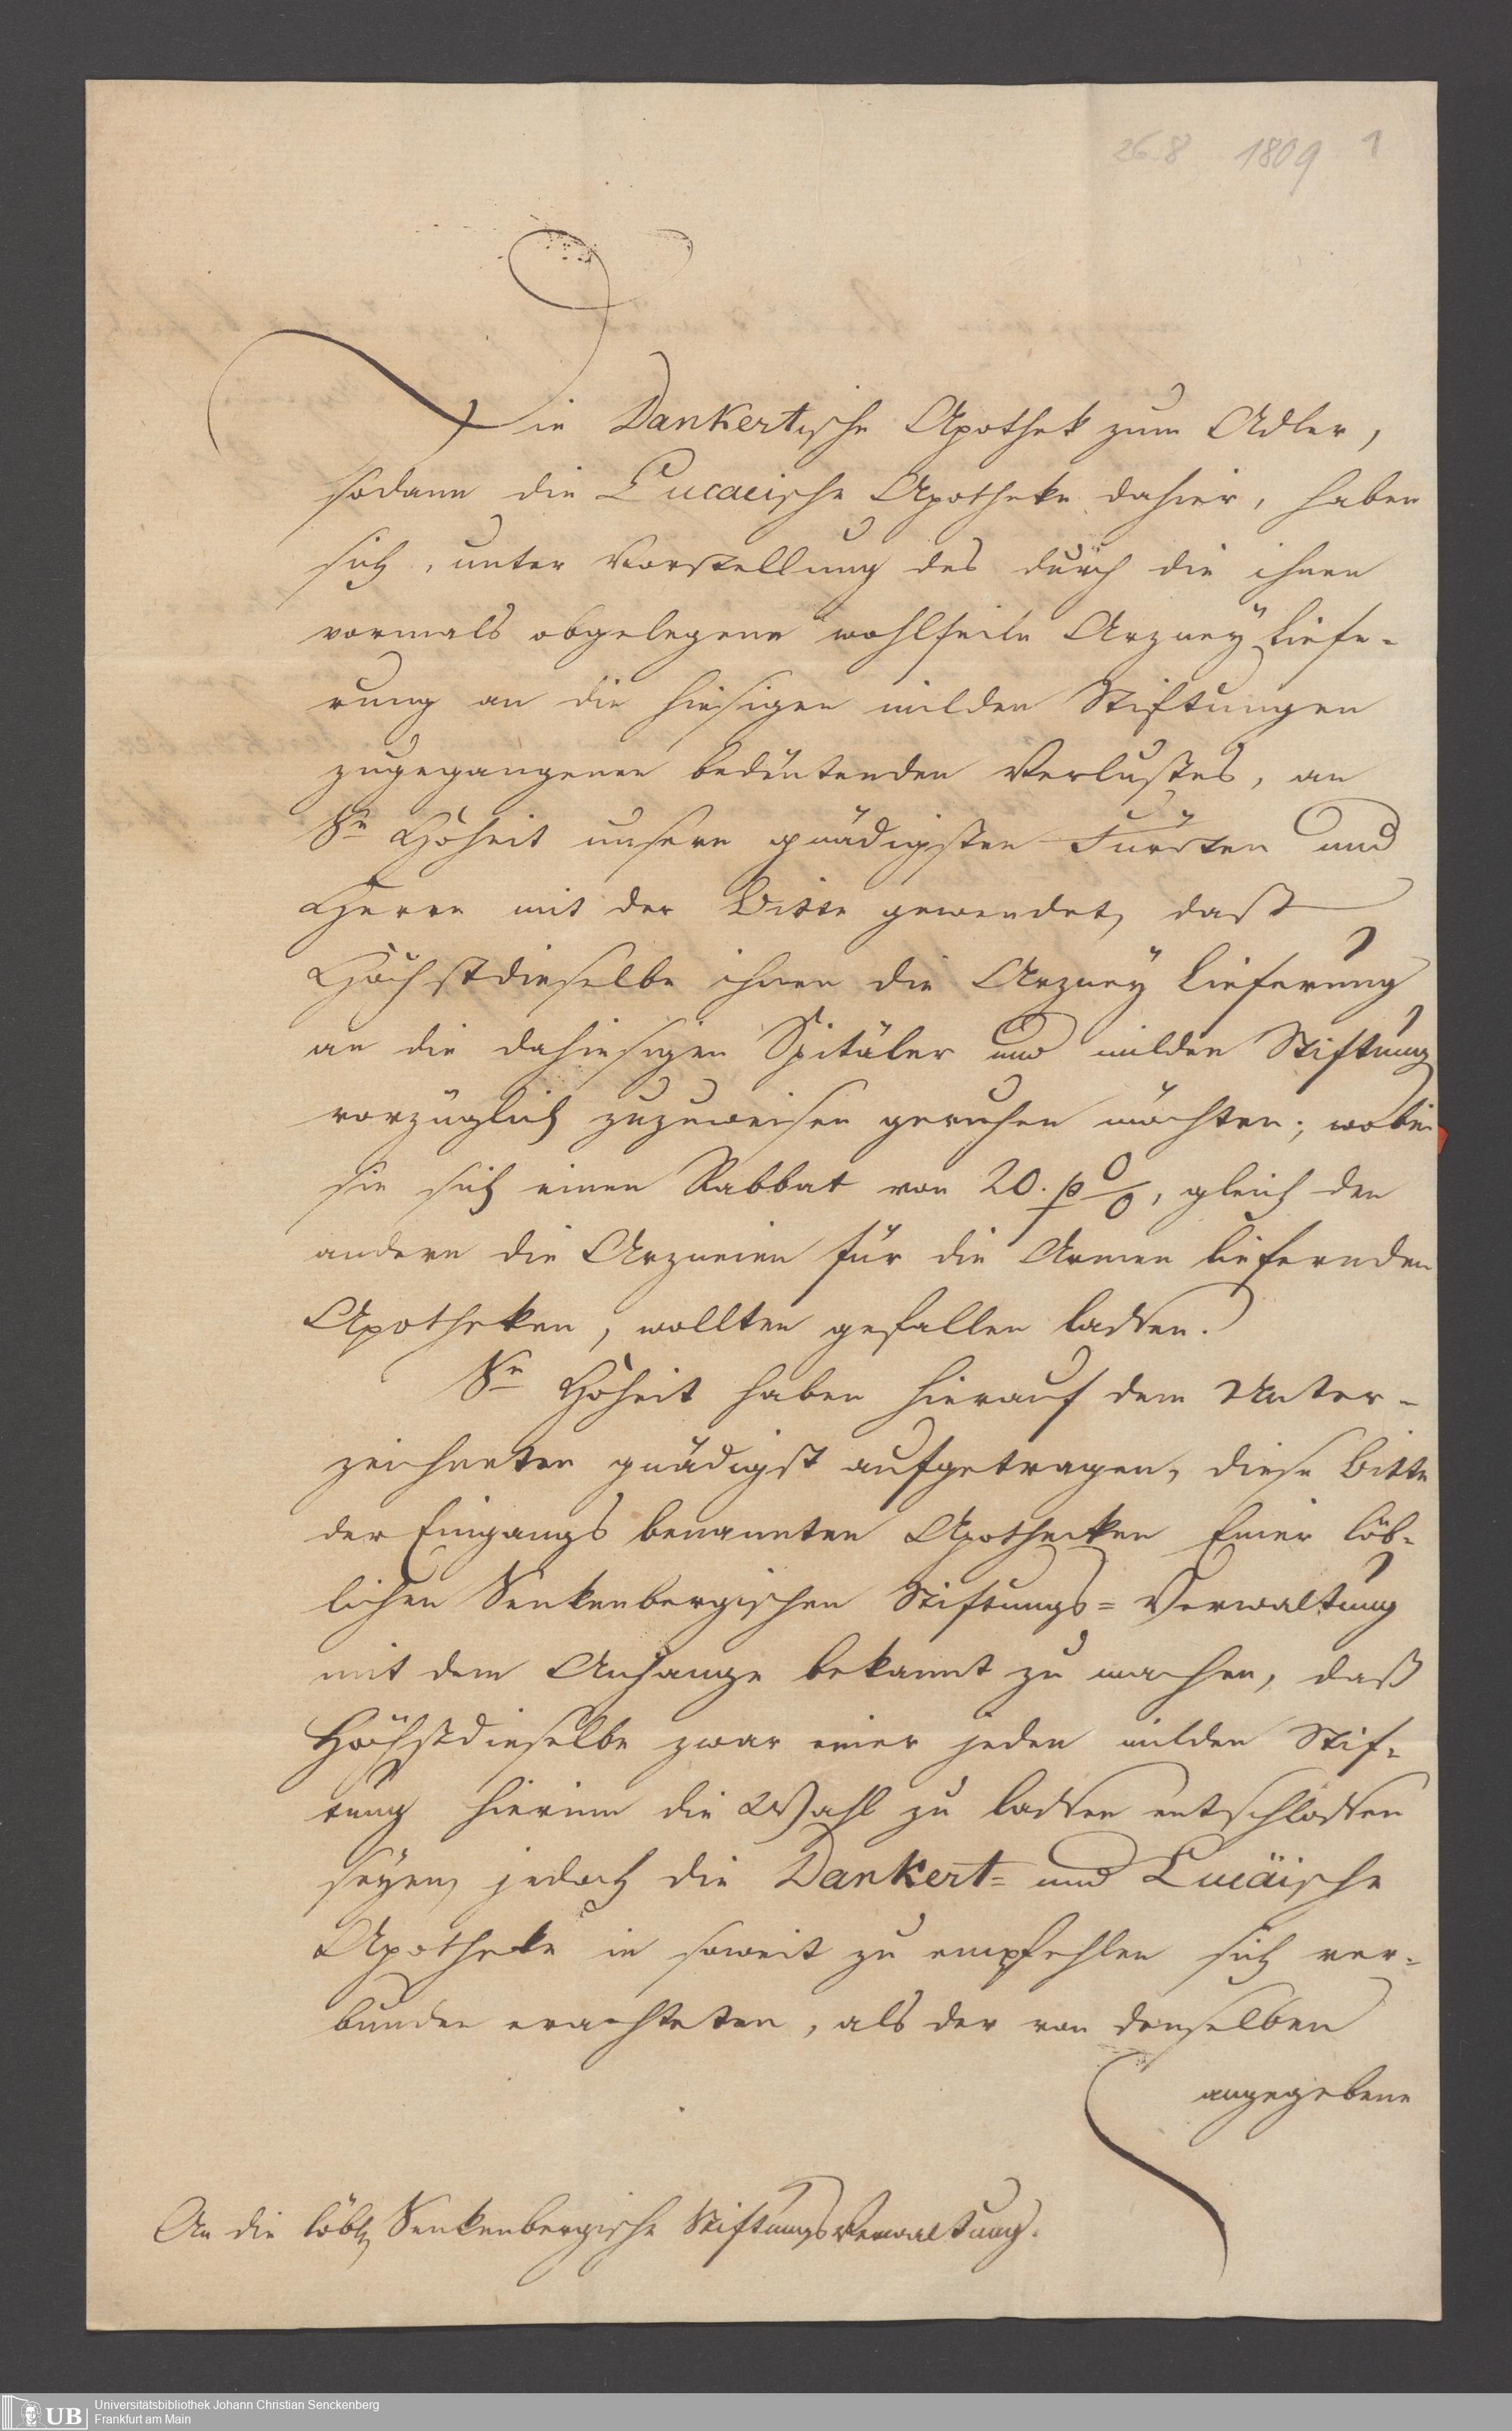 26.8 1809 1
Die Dankertische Apothek zum Adler,
sodann die Lucaeische Apotheke dahier, haben
sich, unter Vorstellung des durch die ihnen
vormals obgelegene wohlfeile Arzney Liefe-
rung an die hiesigen milden Stiftungen
zugegangenen bedeutenden Verlustes, an
Se Hoheit unsern gnädigsten Fürsten und
Herrn mit der Bitte gewendet, dasß
Höchstdieselbe ihnen die Arzney Lieferung
an die dahiesigen Spitäler und milden Stiftung
vorzüglich zuzuweisen geruhen möchten; wobei
sie sich einen Rabbat von 20. p%, gleich den
andern die Arzneien für die Armen liefernden
Apotheken, wollten gefallen lassen.
Se Hoheit haben hierauf dem Unter-
zeichneten gnädigst aufgetragen, diese Bitte
der Eingangs benannten Apothecken Einer löb-
lichen Senkenbergischen Stiftungs=Verwaltung
mit dem Anhange bekannt zu machen, daß
Höchstdieselbe zwar einer jeden milden Stif-
tung hierinn die Wahl zu lassen entschlossen
seyen, jedoch die Dankert= und Lucäische
Apotheke in soweit zu empfehlen sich ver-
bunden erachteten, als der von denselben
angegebene
An die löbl. Senkenbergische Stiftungs Verwaltung.
UB Universitätsbibliothek Johann Christian Senckenberg
Frankfurt am Main